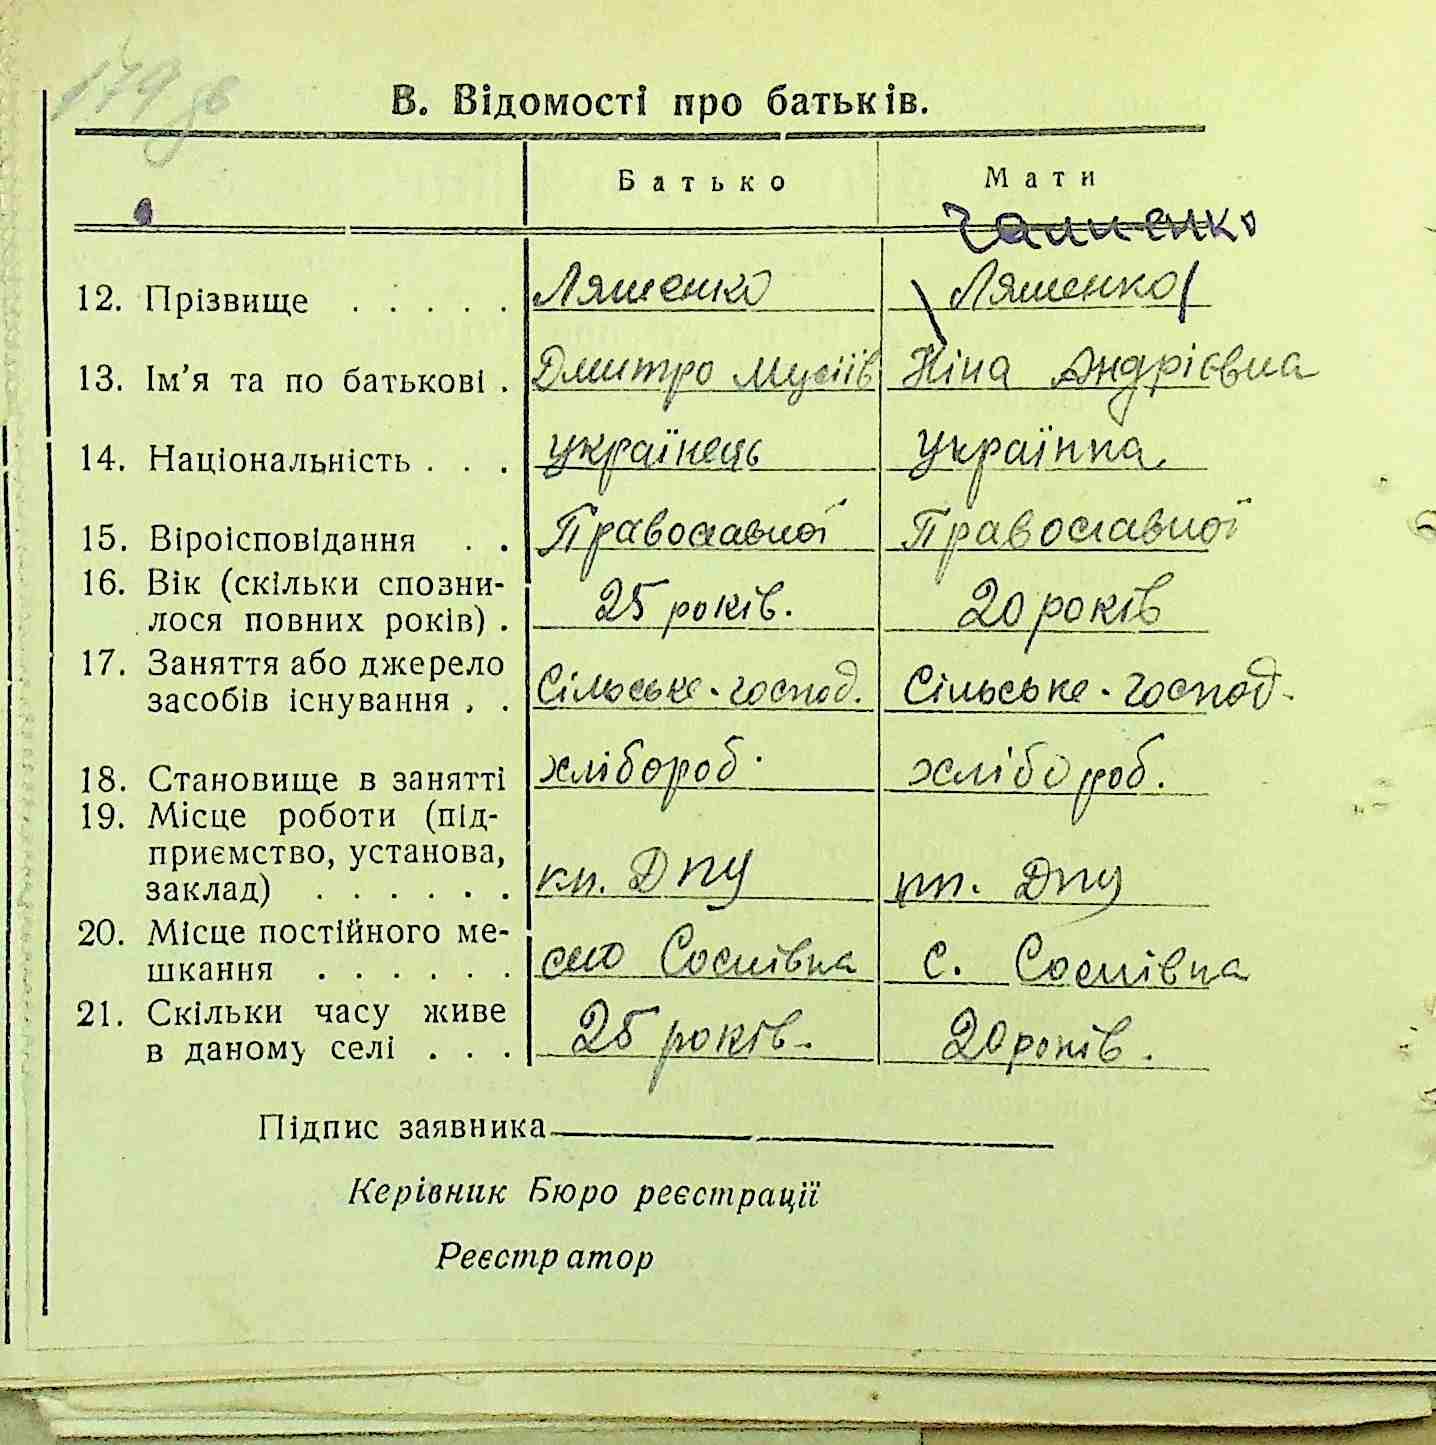 179 зв
В. Відомості про батьків.
Батько Мати
12. Прізвище . . . . . Ляшенко Ляшенко
13. Ім'я та по батькові . Дмитро Мусіїв Ніна Андрієвна
14. Національність . . . українець українка
15. Віроісповідання . . Православної Православної
16. Вік (скільки спозни-
лося повних років) . 25 років. 20 років
17. Заняття або джерело
засобів існування . . Сільське-господ. Сільське-господ.
18. Становище в занятті хлібороб. хлібороб.
19. Місце роботи (під-
приємство, установа,
заклад) . . . . . . ДПУ ДПУ
20. Місце постійного ме-
шкання . . . . . . село Соснівка с. Соснівка
21. Скільки часу живе
в даному селі . . . 25 років. 20 років.
Підпис заявника
Керівник Бюро реєстрації
Реєстратор